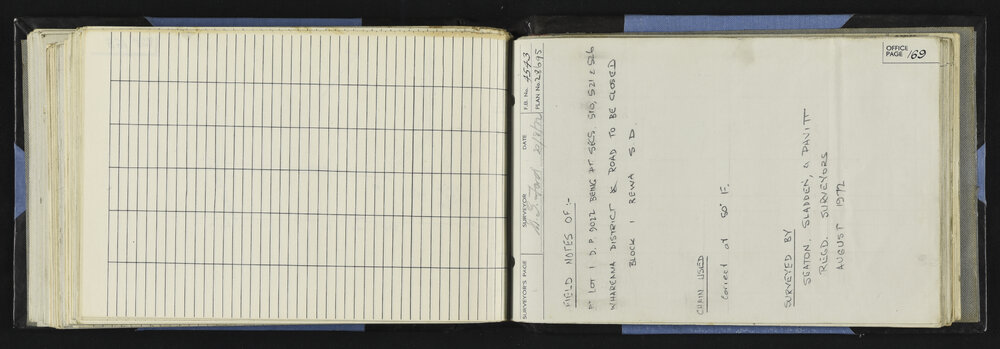 OFFICE PAGE 169
SURVEYOR'S PAGE
SURVEYOR
DATE
F.B. No. 4543
PLAN No. 28695
FIELD NOTES OF :-
PT LOT 1 D.P. 9022 BEING PT SECS. 510, 521 & 526
WHAREAMA DISTRICT & ROAD TO BE CLOSED
BLOCK 1 REWA S D.
CHAIN USED
Correct at 50° F.
SURVEYED BY
SEATON, SLADDEN, & PAVITT
REGD. SURVEYORS
AUGUST 1972